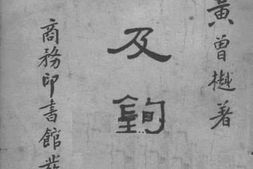 黃曾樾著
及鉤
商務印書館